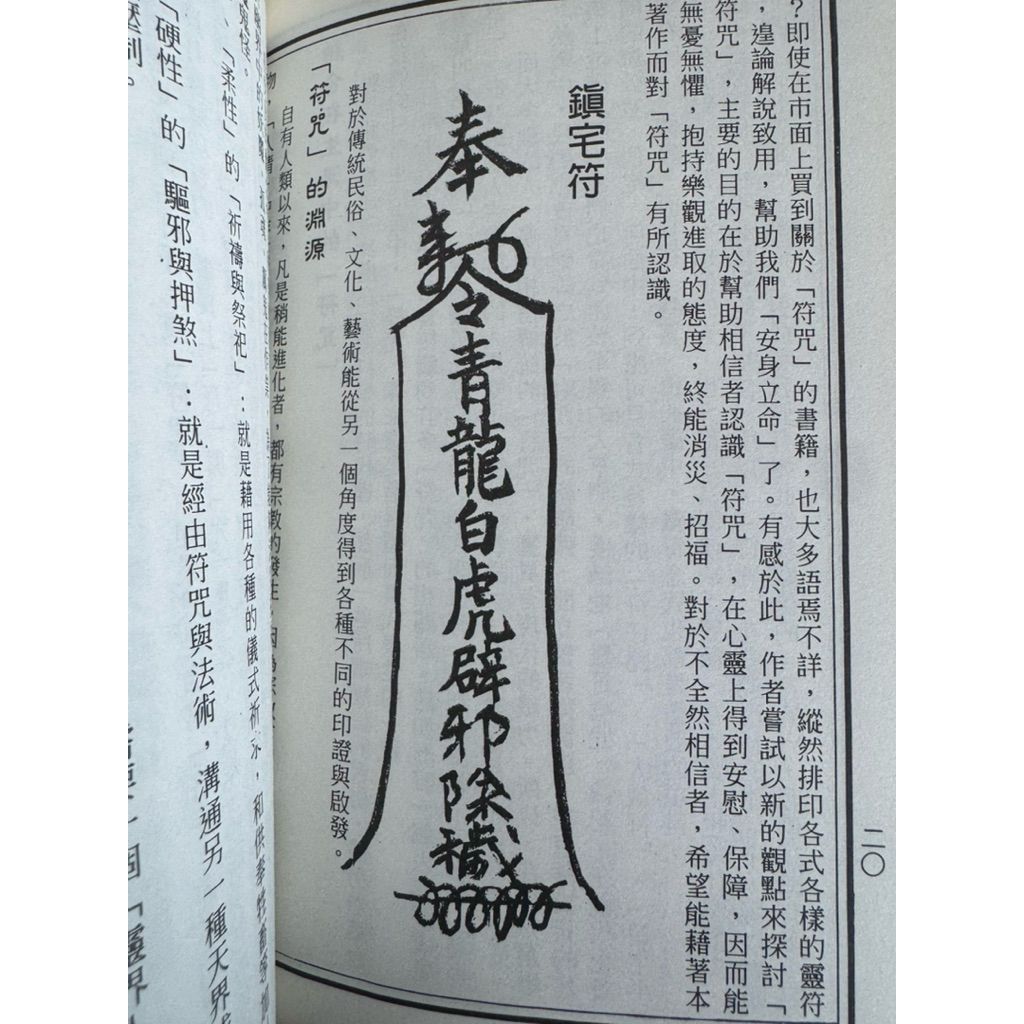 ？即使在市面上買到關於「符咒」的書籍，也大多語焉不詳，縱然排印各式各樣的靈符
，遑論解說致用，幫助我們「安身立命」了。有感於此，作者嘗試以新的觀點來探討「
符咒」，主要的目的在於幫助相信者認識「符咒」，在心靈上得到安慰、保障，因而能
無憂無懼，抱持樂觀進取的態度，終能消災、招福。對於不全然相信者，希望能藉著本
著作而對「符咒」有所認識。
二〇
鎮宅符
奉
令青龍白虎辟邪除穢
對於傳統民俗、文化、藝術能從另一個角度得到各種不同的印證與啟發。
「符咒」的淵源
自有人類以來，凡是稍能進化者，都有宗教的發生，因為宗教
、「柔性」的「祈禱與祭祀」：就是藉用各種的儀式祈求，和供奉牲
「硬性」的「驅邪與押煞」：就是經由符咒與法術，溝通另一種天界
壓制。
個「靈界